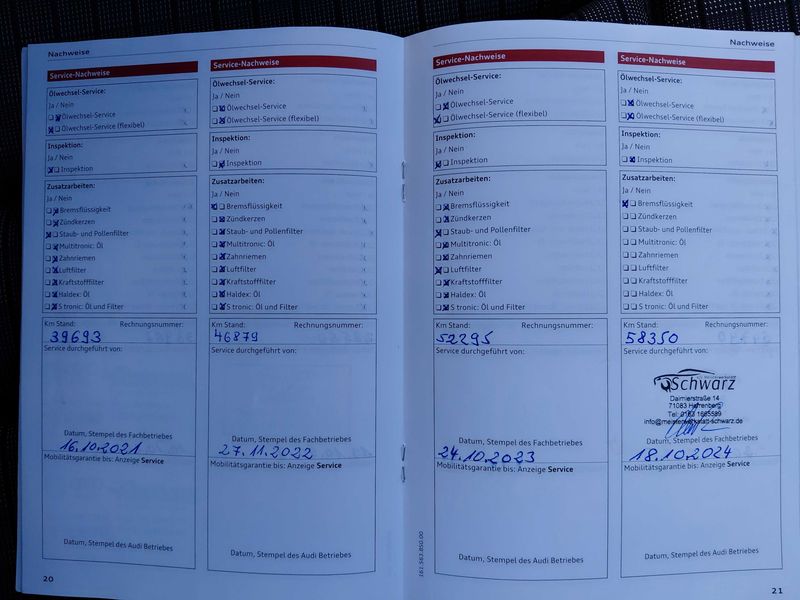 Nachweise
Service-Nachweise
Ölwechsel-Service:
Ja / Nein
Ölwechsel-Service
Ölwechsel-Service (flexibel)
Inspektion:
Ja / Nein
Inspektion
Zusatzarbeiten:
Ja / Nein
Bremsflüssigkeit
Zündkerzen
Staub- und Pollenfilter
Multitronic: Öl
Zahnriemen
Luftfilter
Kraftstofffilter
Haldex: Öl
S tronic: Öl und Filter
Km Stand: Rechnungsnummer:
39693
Service durchgeführt von:
Datum, Stempel des Fachbetriebes
16.10.2021
Mobilitätsgarantie bis: Anzeige Service
Datum, Stempel des Audi Betriebes
20
Service-Nachweise
Ölwechsel-Service:
Ja / Nein
Ölwechsel-Service
Ölwechsel-Service (flexibel)
Inspektion:
Ja / Nein
Inspektion
Zusatzarbeiten:
Ja / Nein
Bremsflüssigkeit
Zündkerzen
Staub- und Pollenfilter
Multitronic: Öl
Zahnriemen
Luftfilter
Kraftstofffilter
Haldex: Öl
S tronic: Öl und Filter
Km Stand: Rechnungsnummer:
46879
Service durchgeführt von:
Datum, Stempel des Fachbetriebes
27.11.2022
Mobilitätsgarantie bis: Anzeige Service
Datum, Stempel des Audi Betriebes
Nachweise
Service-Nachweise
Ölwechsel-Service:
Ja / Nein
Ölwechsel-Service
Ölwechsel-Service (flexibel)
Inspektion:
Ja / Nein
Inspektion
Zusatzarbeiten:
Ja / Nein
Bremsflüssigkeit
Zündkerzen
Staub- und Pollenfilter
Multitronic: Öl
Zahnriemen
Luftfilter
Kraftstofffilter
Haldex: Öl
S tronic: Öl und Filter
Km Stand: Rechnungsnummer:
52295
Service durchgeführt von:
Datum, Stempel des Fachbetriebes
24.10.2023
Mobilitätsgarantie bis: Anzeige Service
Datum, Stempel des Audi Betriebes
Service-Nachweise
Ölwechsel-Service:
Ja / Nein
Ölwechsel-Service
Ölwechsel-Service (flexibel)
Inspektion:
Ja / Nein
Inspektion
Zusatzarbeiten:
Ja / Nein
Bremsflüssigkeit
Zündkerzen
Staub- und Pollenfilter
Multitronic: Öl
Zahnriemen
Luftfilter
Kraftstofffilter
Haldex: Öl
S tronic: Öl und Filter
Km Stand: Rechnungsnummer:
58350
Service durchgeführt von:
Schwarz
Daimlerstraße 14
71083 Herrenberg
Tel.: 0163
info@meisterwerkstatt-schwarz.de
Datum, Stempel des Fachbetriebes
18.10.2024
Mobilitätsgarantie bis: Anzeige Service
Datum, Stempel des Audi Betriebes
21